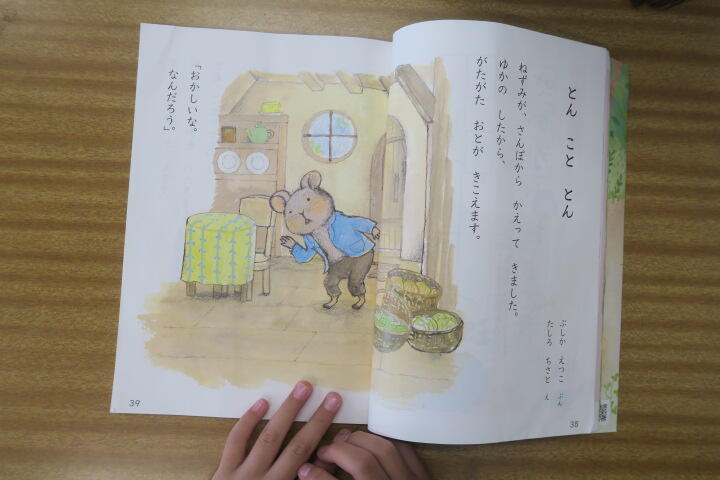 とん こと とん
ぶしか えつこ ぶん
たしろ ちさと え
ねずみが、さんぽから かえって きました。
ゆかの したから、
がたがた おとが きこえます。
38
「おかしいな。
なんだろう。」
39